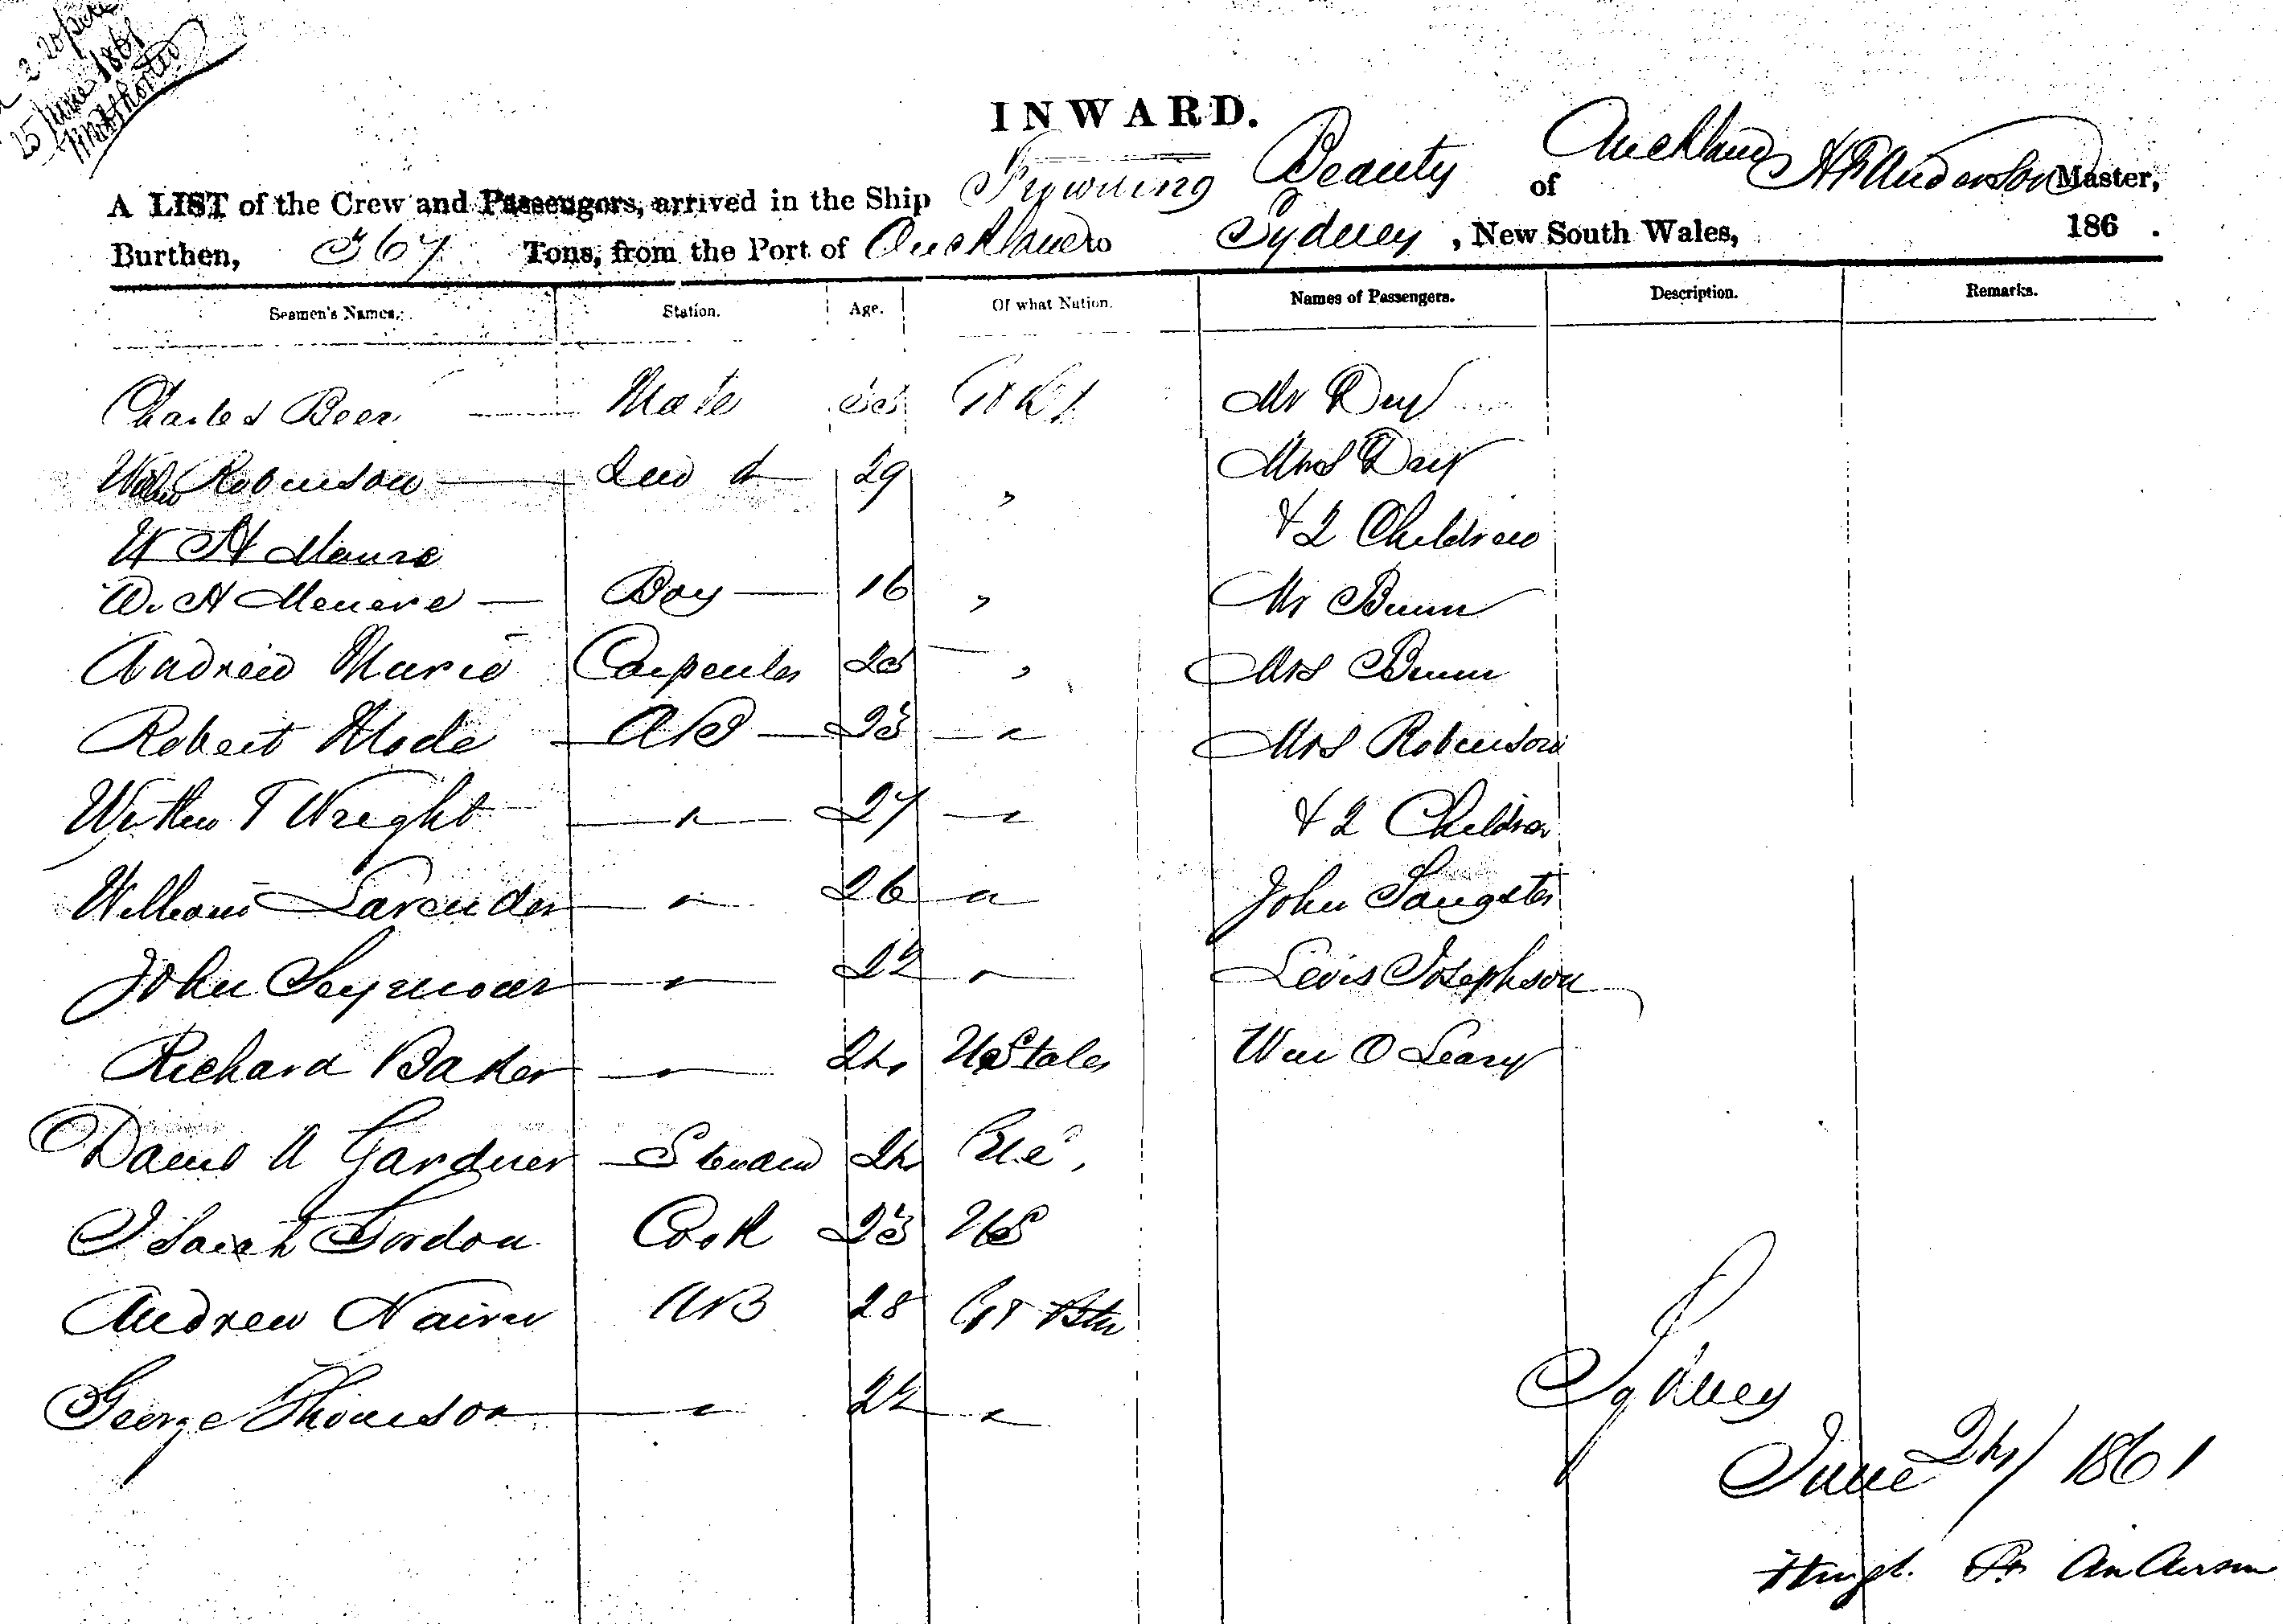 2 20 pm
25 June 1861
INWARD.
A LIST of the Crew and Passengers, arrived in the Ship Frowning Beauty of Auckland H P Anderson Master,
Burthen, 367 Tons, from the Port of Auckland to Sydney, New South Wales, 186 .
Seamen's Names. Station. Age. Of what Nation. Names of Passengers. Description. Remarks.
Charles Beer Mate Mr Day
Robinson 29 " Mrs Day
W H & 2 Children
W. H Boy 16 " Mr Bunn
Andrew Carpenter " Mrs Bunn
Robert Mode AB 23 " Mrs Robinson
T Wright " 27 " & 2 Children
William Lavender " 26 " John Sangster
John Seymour " 22 " Levis Josephson
Richard Baker " 24 U States Wm O Leary
Daniel A Gardner Steward 24
Isaiah Gordon Cook 23 US
Andrew Nairn AB 28 Gt Btn
George Thomson " 22 "
Sydney
June 24/1861
Hugh F. Anderson